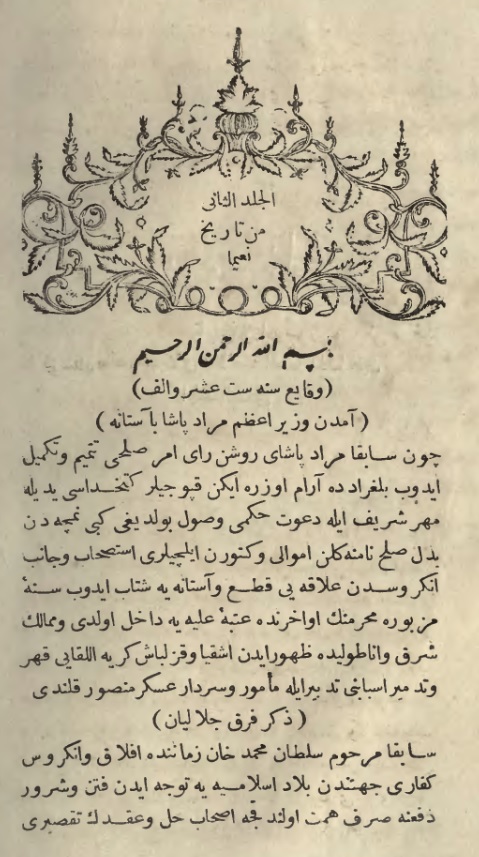 الجلد الثانى
من تاريخ
نعيما
بسم الله الرحمن الرحيم
(وقايع سنه ست عشر والف)
(آمدن وزير اعظم مراد پاشا با آستانه)
چون سابقا مراد پاشاى روشن راى امر صلحى تتميم وتكميل
ايدوب بلغراد ده آرام اوزره ايكن قپوجيلر كتخداسى يديله
مهر شريف ايله دعوت حكمى وصول بولديغى كبى نمچه دن
بدل صلح نامنه كلن اموالى وكتورن ايلچيلرى استصحاب وجانب
انكروسدن علاقه يى قطع وآستانه يه شتاب ايدوب سنهٔ
مزبوره محرمنك اواخرنده عتبهٔ عليه يه داخل اولدى وممالك
شرق واناطوليده ظهور ايدن اشقيا وقزلباش كريه اللقايى قهر
وتدمير اسبابنى تدبيرايله مأمور وسردار عسكر منصور قلندى
(ذكر فرق جلاليان)
سابقا مرحوم سلطان محمد خان زماننده افلاق وانكروس
كفارى جهتندن بلاد اسلاميه يه توجه ايدن فتن وشرور
دفعنه صرف همت اولندقجه اصحاب حل وعقدك تقصيرى